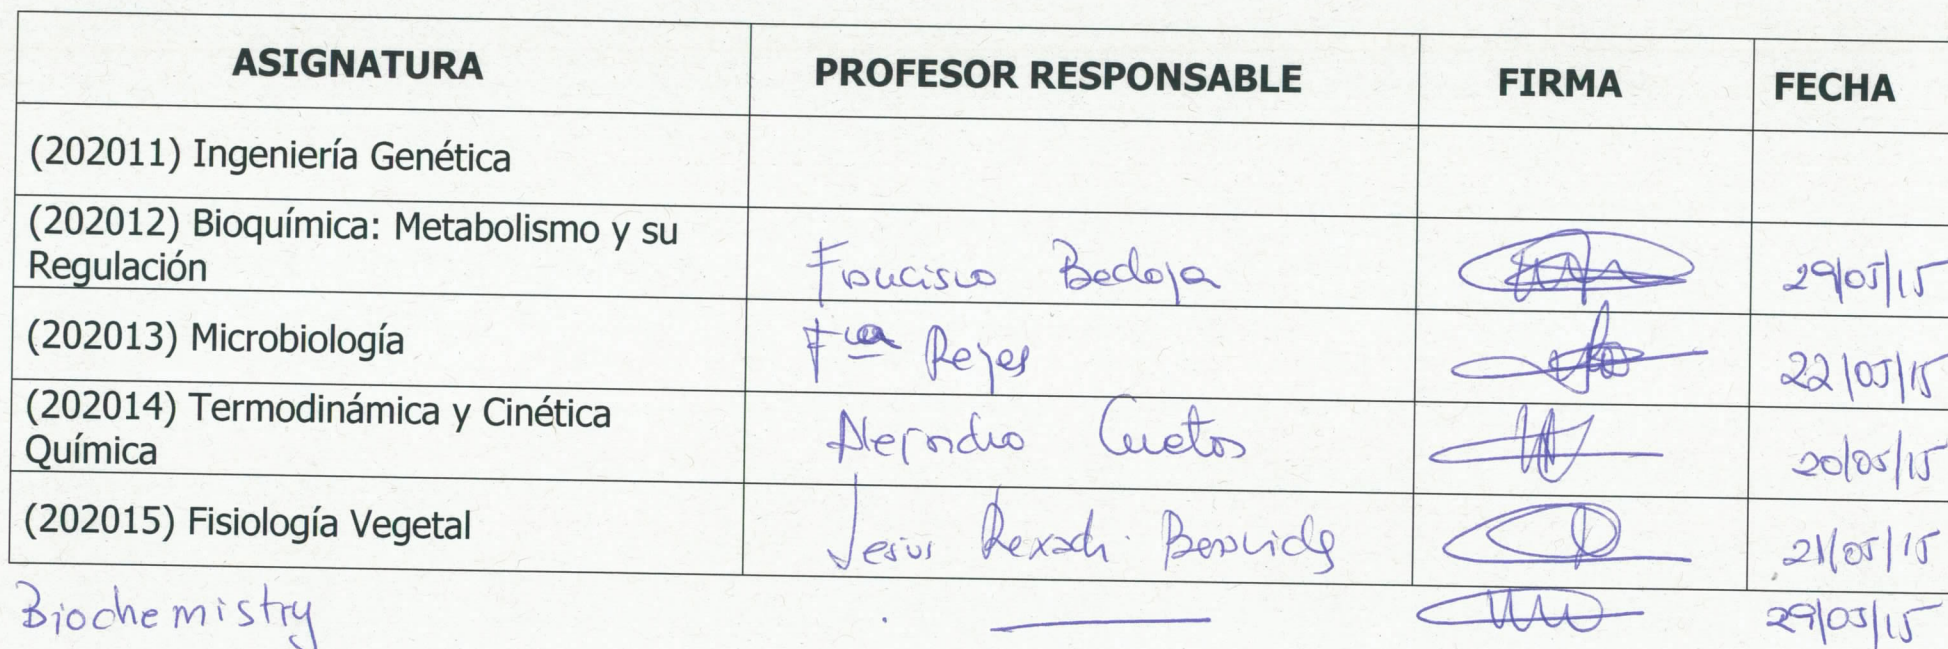 ASIGNATURA PROFESOR RESPONSABLE FIRMA FECHA
(202011) Ingeniería Genética
(202012) Bioquímica: Metabolismo y su
Regulación
Francisco Bedoya 29/05/15
(202013) Microbiología Fca Reyes 22/05/15
(202014) Termodinámica y Cinética
Química
Alejandro Cuetos 20/05/15
(202015) Fisiología Vegetal Jesús Rexach 21/05/15
Biochemistry 29/05/15